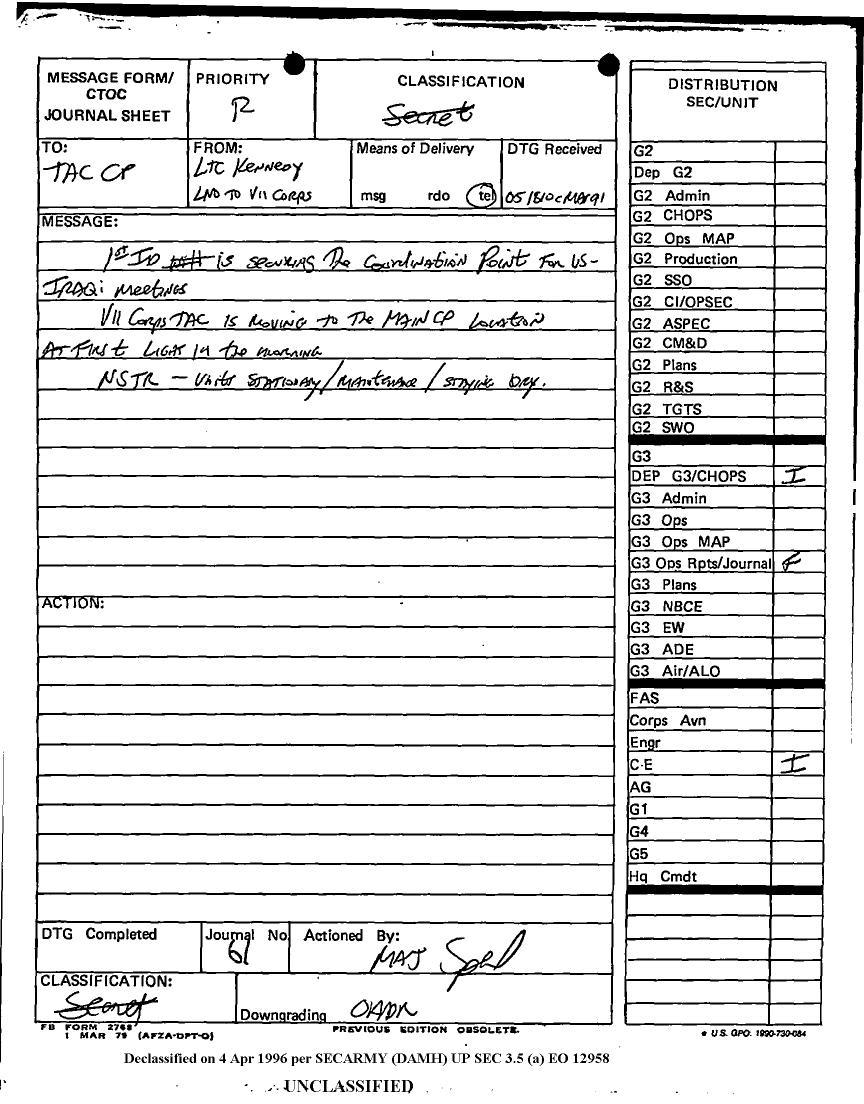 MESSAGE FORM/
CTOC
JOURNAL SHEET
PRIORITY
R
CLASSIFICATION
Secret
DISTRIBUTION
SEC/UNIT
TO:
TAC CP
FROM:
LTC Kennedy
LNO TO VII CORPS
Means of Delivery
msg rdo tel
DTG Received
051810CMAR91
MESSAGE:
1st ID is securing The Coordination Point For US-
IRAQi meetings
VII Corps TAC is moving to the MAIN CP Location
At First Light in the morning
NSTR – Units STATIONARY/MAINTENANCE/STAYING DRY.
ACTION:
DTG Completed
Journal No
61
Actioned By:
MAJ
CLASSIFICATION:
Secret
Downgrading OADR
FB FORM 2768
1 MAR 79 (AFZA-DPT-O)
PREVIOUS EDITION OBSOLETE.
G2
Dep G2
G2 Admin
G2 CHOPS
G2 Ops MAP
G2 Production
G2 SSO
G2 CI/OPSEC
G2 ASPEC
G2 CM&D
G2 Plans
G2 R&S
G2 TGTS
G2 SWO
G3
DEP G3/CHOPS I
G3 Admin
G3 Ops
G3 Ops MAP
G3 Ops Rpts/Journal F
G3 Plans
G3 NBCE
G3 EW
G3 ADE
G3 Air/ALO
FAS
Corps Avn
Engr
C-E I
AG
G1
G4
G5
Hq Cmdt
* U.S. GPO: 1990-730-084
Declassified on 4 Apr 1996 per SECARMY (DAMH) UP SEC 3.5 (a) EO 12958
UNCLASSIFIED